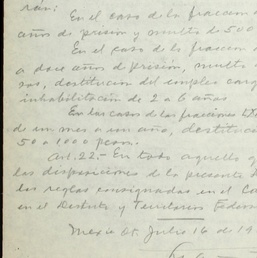 rán:
En el caso de la fraccion
años de presion y multa de 500
En el caso de la fraccion
a doce años de presion, multa
sos, destitucion del empleo car
inhabilitación de 2 a 6 años
En los casos de las fracciones
de un mes a un año, destituc
50 a 1000 pesos.
Art. 22.- En todo aquello q
las disposiciones de la presente
las reglas consignadas en el Co
en el Distrito y Territorios Federa
Mexico Julio 16 de 19